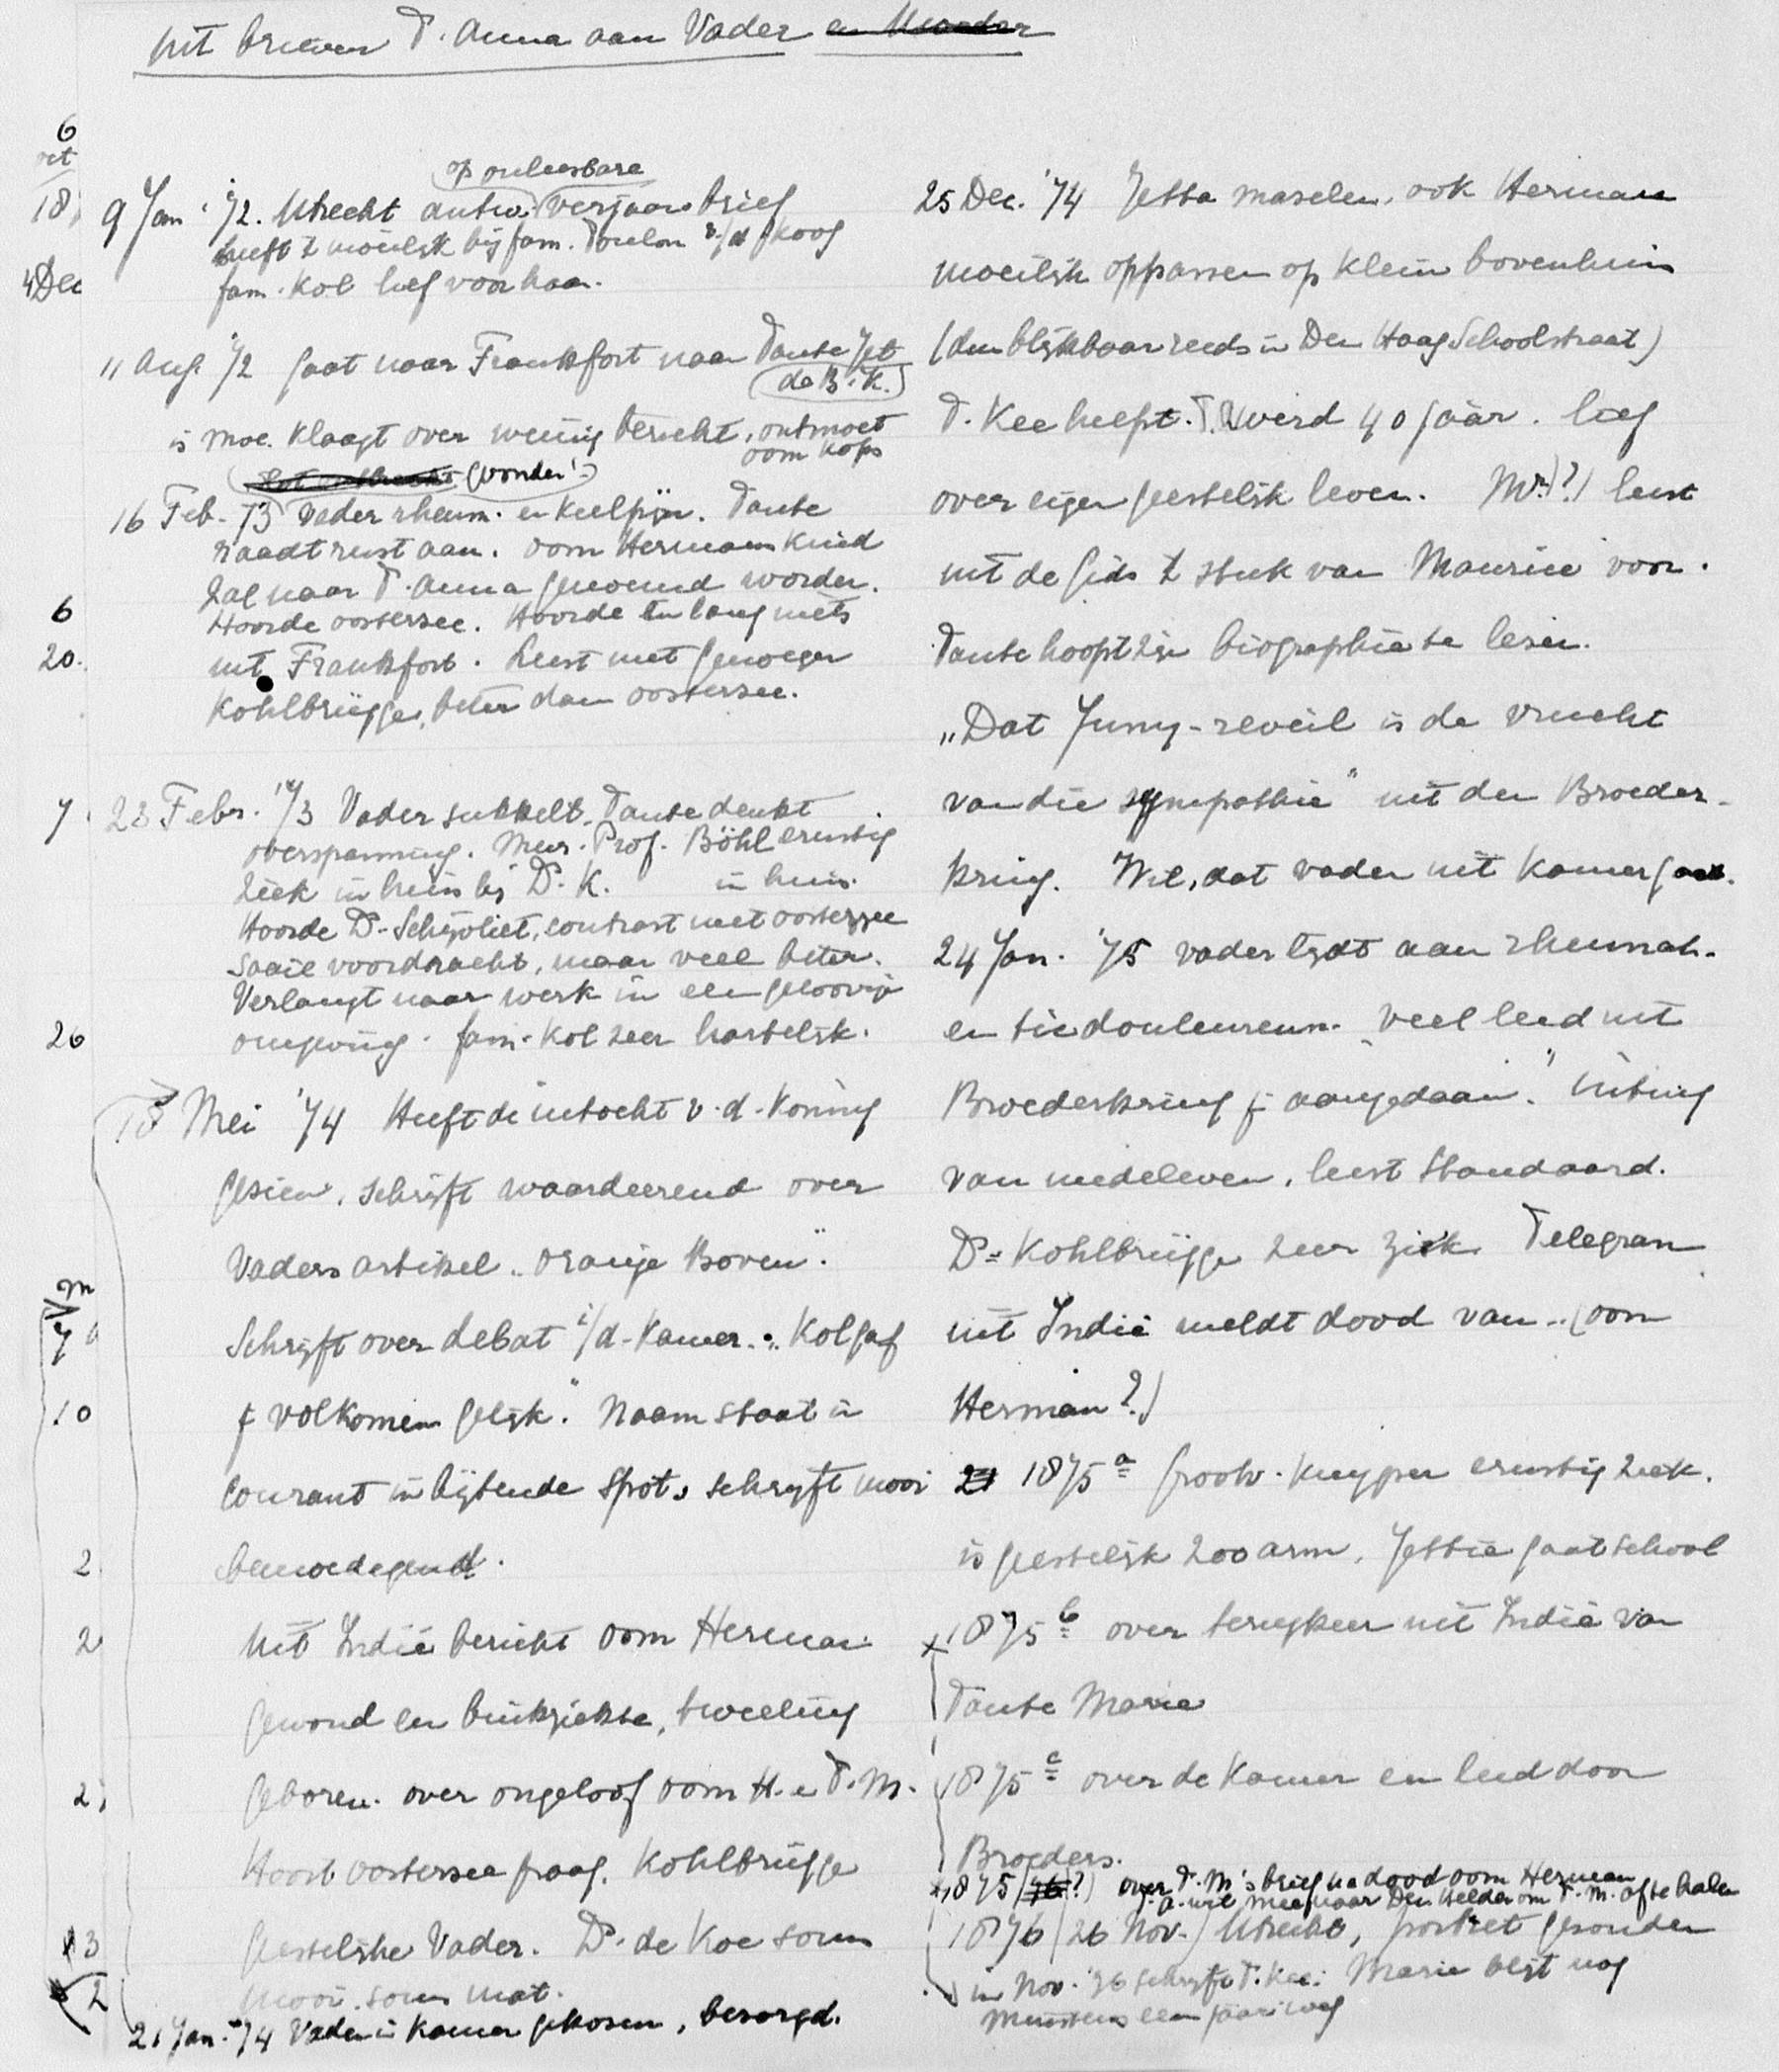 Uit brieven T. Anna aan Vader en Moeder
6
oct
18
4 Dec
6
20.
7
26
10
2
2
2
3
2
op onleesbare
9 Jan. '72. Utrecht antw. verjaarsbrief
heeft 't moeilijk bij fam. Toulon v/d Koog
fam. Kol lief voor haar.
11 Aug. '72 gaat naar Frankfort naar Tante Jet
(de B. K.)
is moe. Klaagt over weinig bericht, ontmoet
oom Kops
16 Feb. '73 Vader rheum. en keelpijn. Tante
raadt rust aan. oom Hermans kind
zal naar T. Anna genoemd worden.
Hoorde oosterzee. Hoorde in lang niets
uit Frankfort. Leest met genoegen
Kohlbrügge, beter dan oosterzee.
23 Febr. '73 Vader sukkelt. Tante denkt
overspanning. Mevr. Prof. Böhl ernstig
ziek in huis bij Dr. K. in huis.
Hoorde Ds. Schijvliet, contrast met oosterzee
saaie voordracht, maar veel beter.
Verlangt naar werk in een geloovige
omgeving. fam. Kol zeer hartelijk.
18 Mei '74 Heeft de intocht v. d. Koning
gezien. schrijft waardeerend over
Vaders artikel "Oranje Boven".
Schrijft over debat i/d Kamer. "Kol gaf
je volkomen gelijk." Naam staat in
courant in bijtende spot. schrijft mooi
bemoedigend.
Uit Indië bericht oom Herman
gewond en buikziekte, tweeling
geboren. over ongeloof oom H. en T. M.
Hoort oosterzee graag. Kohlbrügge
geestelijke Vader. Ds. de Koe soms
mooi. soms mat.
21 Jan. '74 Vader in Kamer gekozen, bezorgd.
25 Dec. '74 Jetta maselen, ook Herman
moeilijk oppassen op klein bovenhuis
(dus blijkbaar reeds in Den Haag Schoolstraat)
T. Kee helpt. T. werd 40 jaar. lief
over eigen geestelijk leven. Mr. (?) leest
uit de Gids 't stuk van Maurice voor.
Tante hoopt zijn biographie te lezen.
"Dat Jung-reveil is de vrucht
van die sympathie" uit den Broeder-
kring. Wil, dat vader uit Kamer gaat.
24 Jan. '75 vader lijdt aan rheumat.
en tic douleureux. Veel leed uit
Broederkring je aangedaan." uiting
van medeleven, leest Standaard.
Dr. Kohlbrügge zeer ziek. Telegram
uit Indië meldt dood van .. (oom
Herman?)
1875 a Grootv. Kuyper ernstig ziek.
is geestelijk zoo arm. Jettie gaat school
1875 b over terugkeer uit Indië van
Tante Marie
1875 c over de Kamer en leed door
Broeders.
1875 (76?) over T. M's brief na dood oom Herman
T. A. wil mee naar Den Helder om T. M. af te halen
1876 (26 Nov.) Utrecht, portret gezonden
in Nov. '76 schrijft T. Kee: Marie blijft nog
minstens een jaar weg